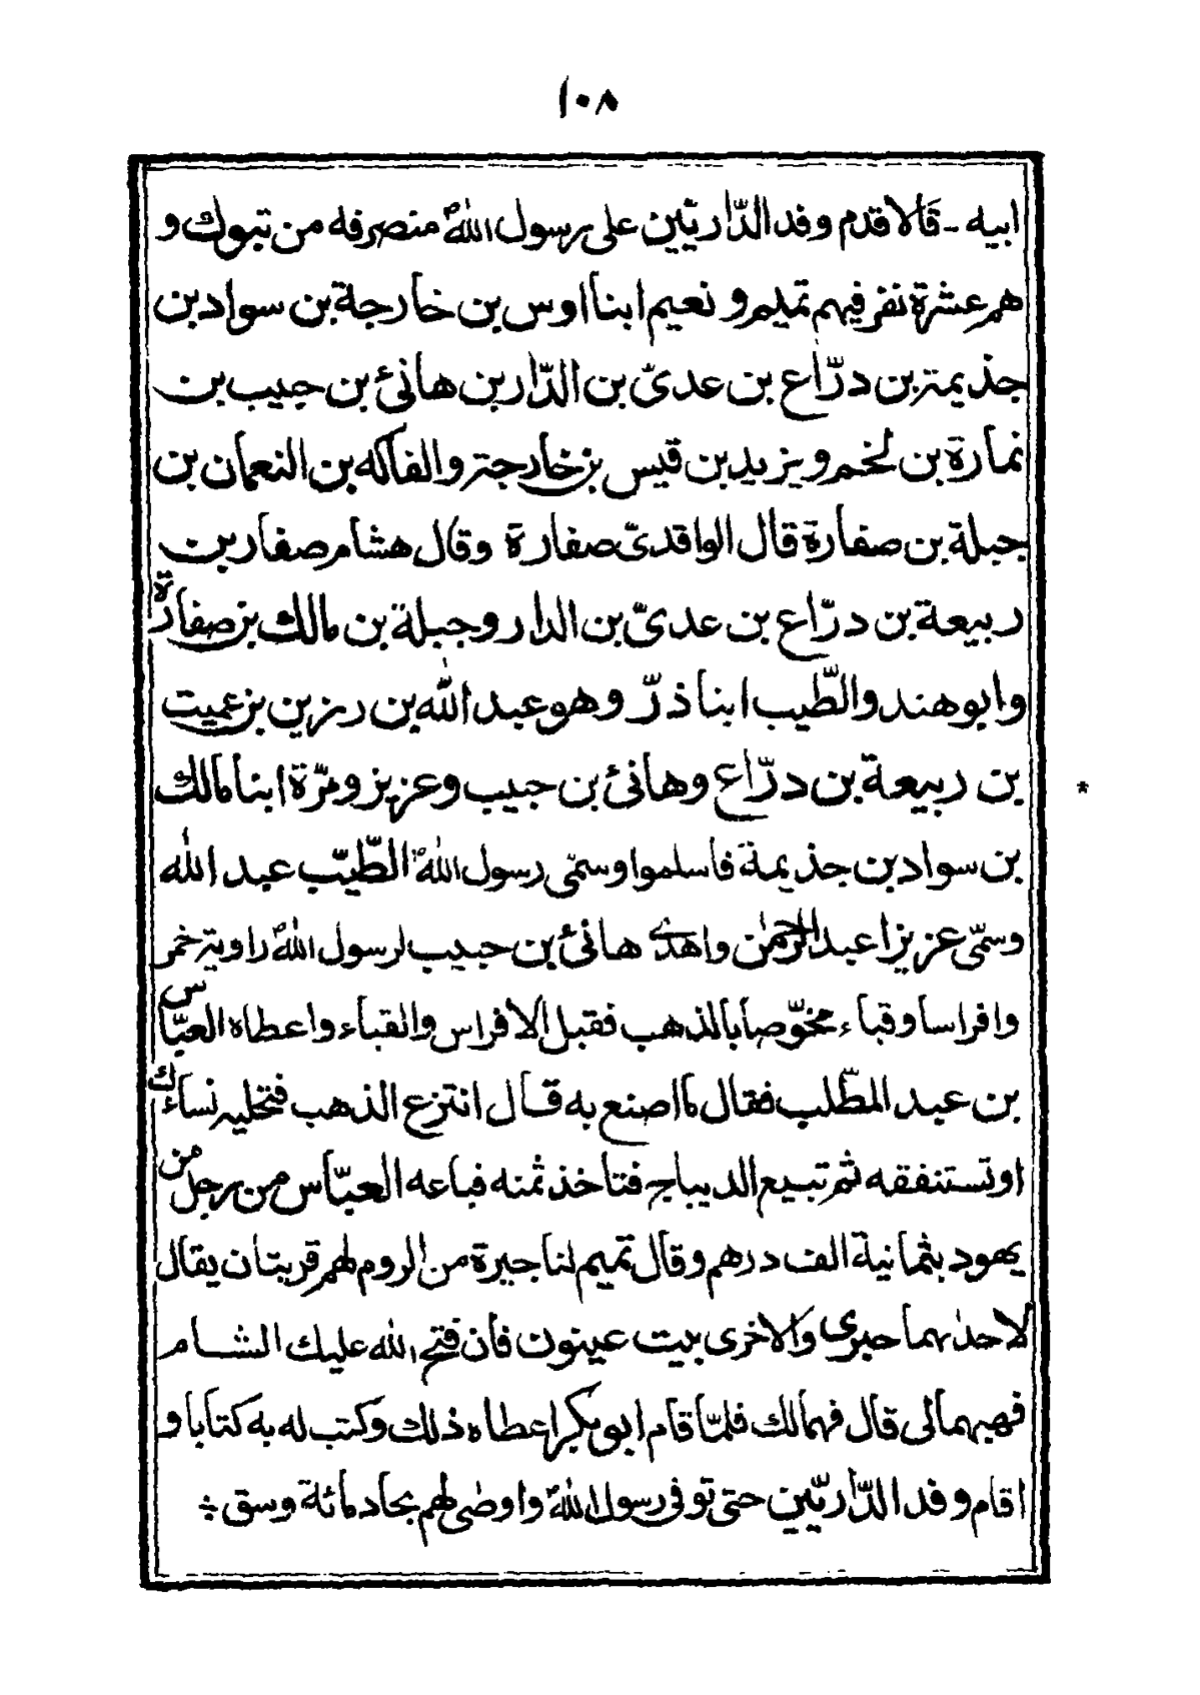 ١٠٨
ابيه - قالا قدم وفد الدّاريّين على رسول اللهؐ منصرفه من تبوك و
هم عشرة نفر فيهم تميم و نعيم ابنا اوس بن خارجة بن سواد بن
جذيمة بن درّاع بن عدىّ بن الدّار بن هانئ بن حبيب بن
نمارة بن لخم ويزيد بن قيس بن خارجة والفاكه بن النعمان بن
جبلة بن صفارة قال الواقدىّ صفارة وقال هشام صفار بن
ربيعة بن درّاع بن عدىّ بن الدار وجبلة بن مالك بن صفارة
وابو هند والطّيب ابنا ذرّ وهو عبد الله بن رزين بن عميت
بن ربيعة بن درّاع وهانئ بن حبيب وعزيز ومرّة ابنا مالك
*
بن سواد بن جذيمة فاسلموا وسمّى رسول اللهؐ الطّيّب عبد الله
وسمّى عزيزا عبد الرحمٰن واهدى هانئ بن حبيب لرسول اللهؐ راوية خمر
وافراسا وقباء مخوّصا بالذهب فقبل الافراس والقباء واعطاه العبّاس
بن عبد المطّلب فقال ما اصنع به قال انتزع الذهب فتحليه نساءك
او تستنفقه ثم تبيع الديباج فتاخذ ثمنه فباعه العبّاس من رجل من
يهود بثمانية الف درهم وقال تميم لنا جيرة من الروم لهم قريتان يقال
لاحدٰهما حبرى والاخرى بيت عينون فان فتح الله عليك الشام
فهبهما لى قال فهما لك فلمّا قام ابو بكر اعطاه ذلك وكتب له به كتابا و
اقام وفد الدّاريّين حتى توفى رسول اللهؐ واوصٰى لهم بجاد مائة وسق ÷